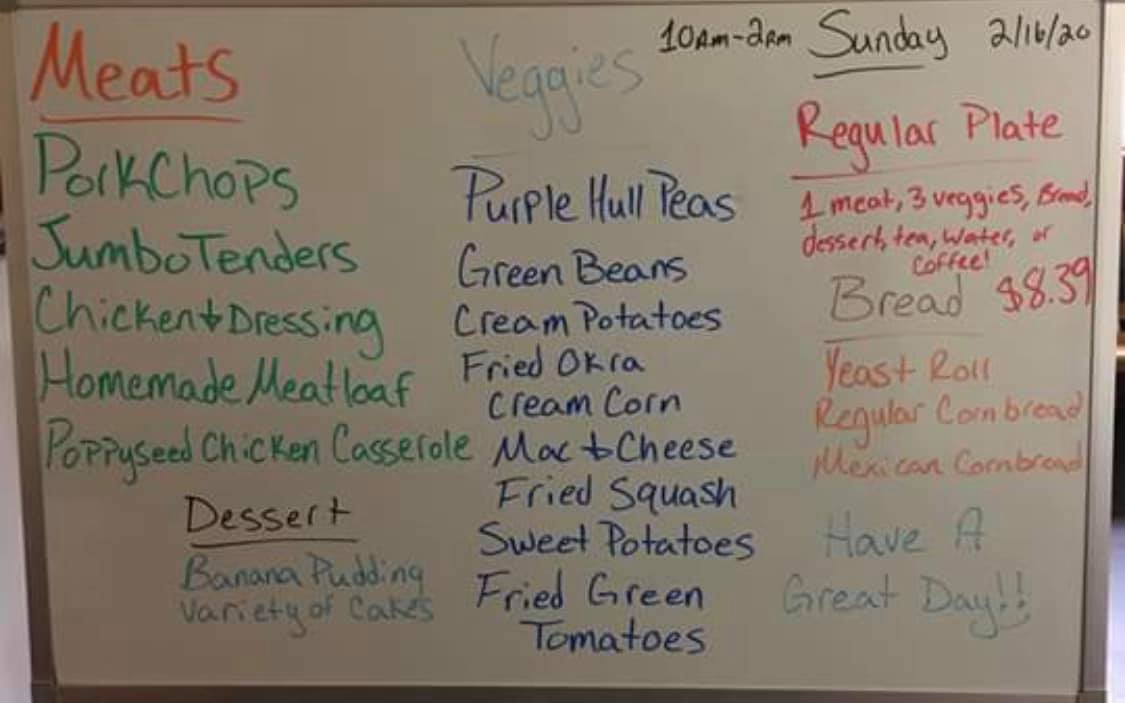 10Am-2Pm Sunday 2/16/20
Meats
PorkChops
Jumbo Tenders
Chicken & Dressing
Homemade Meatloaf
Poppyseed Chicken Casserole
Dessert
Banana Pudding
Variety of Cakes
Veggies
Purple Hull Peas
Green Beans
Cream Potatoes
Fried Okra
Cream Corn
Mac & Cheese
Fried Squash
Sweet Potatoes
Fried Green
Tomatoes
Regular Plate
1 meat, 3 veggies, Bread,
dessert, tea, water, or
coffee!
$8.39
Bread
Yeast Roll
Regular Cornbread
Mexican Cornbread
Have A
Great Day!!